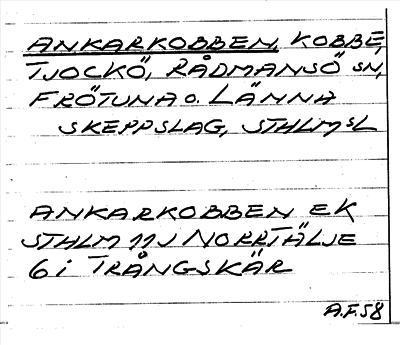 ANKARKOBBEN, KOBBE,
TJOCKÖ, RÅDMANSÖ SN,
FRÖTUNA O. LÄMNA
SKEPPSLAG, STHLM SL
ANKARKOBBEN EK
STHLM 11J NORRTÄLJE
6i TRÅNGSKÄR
A.F.58